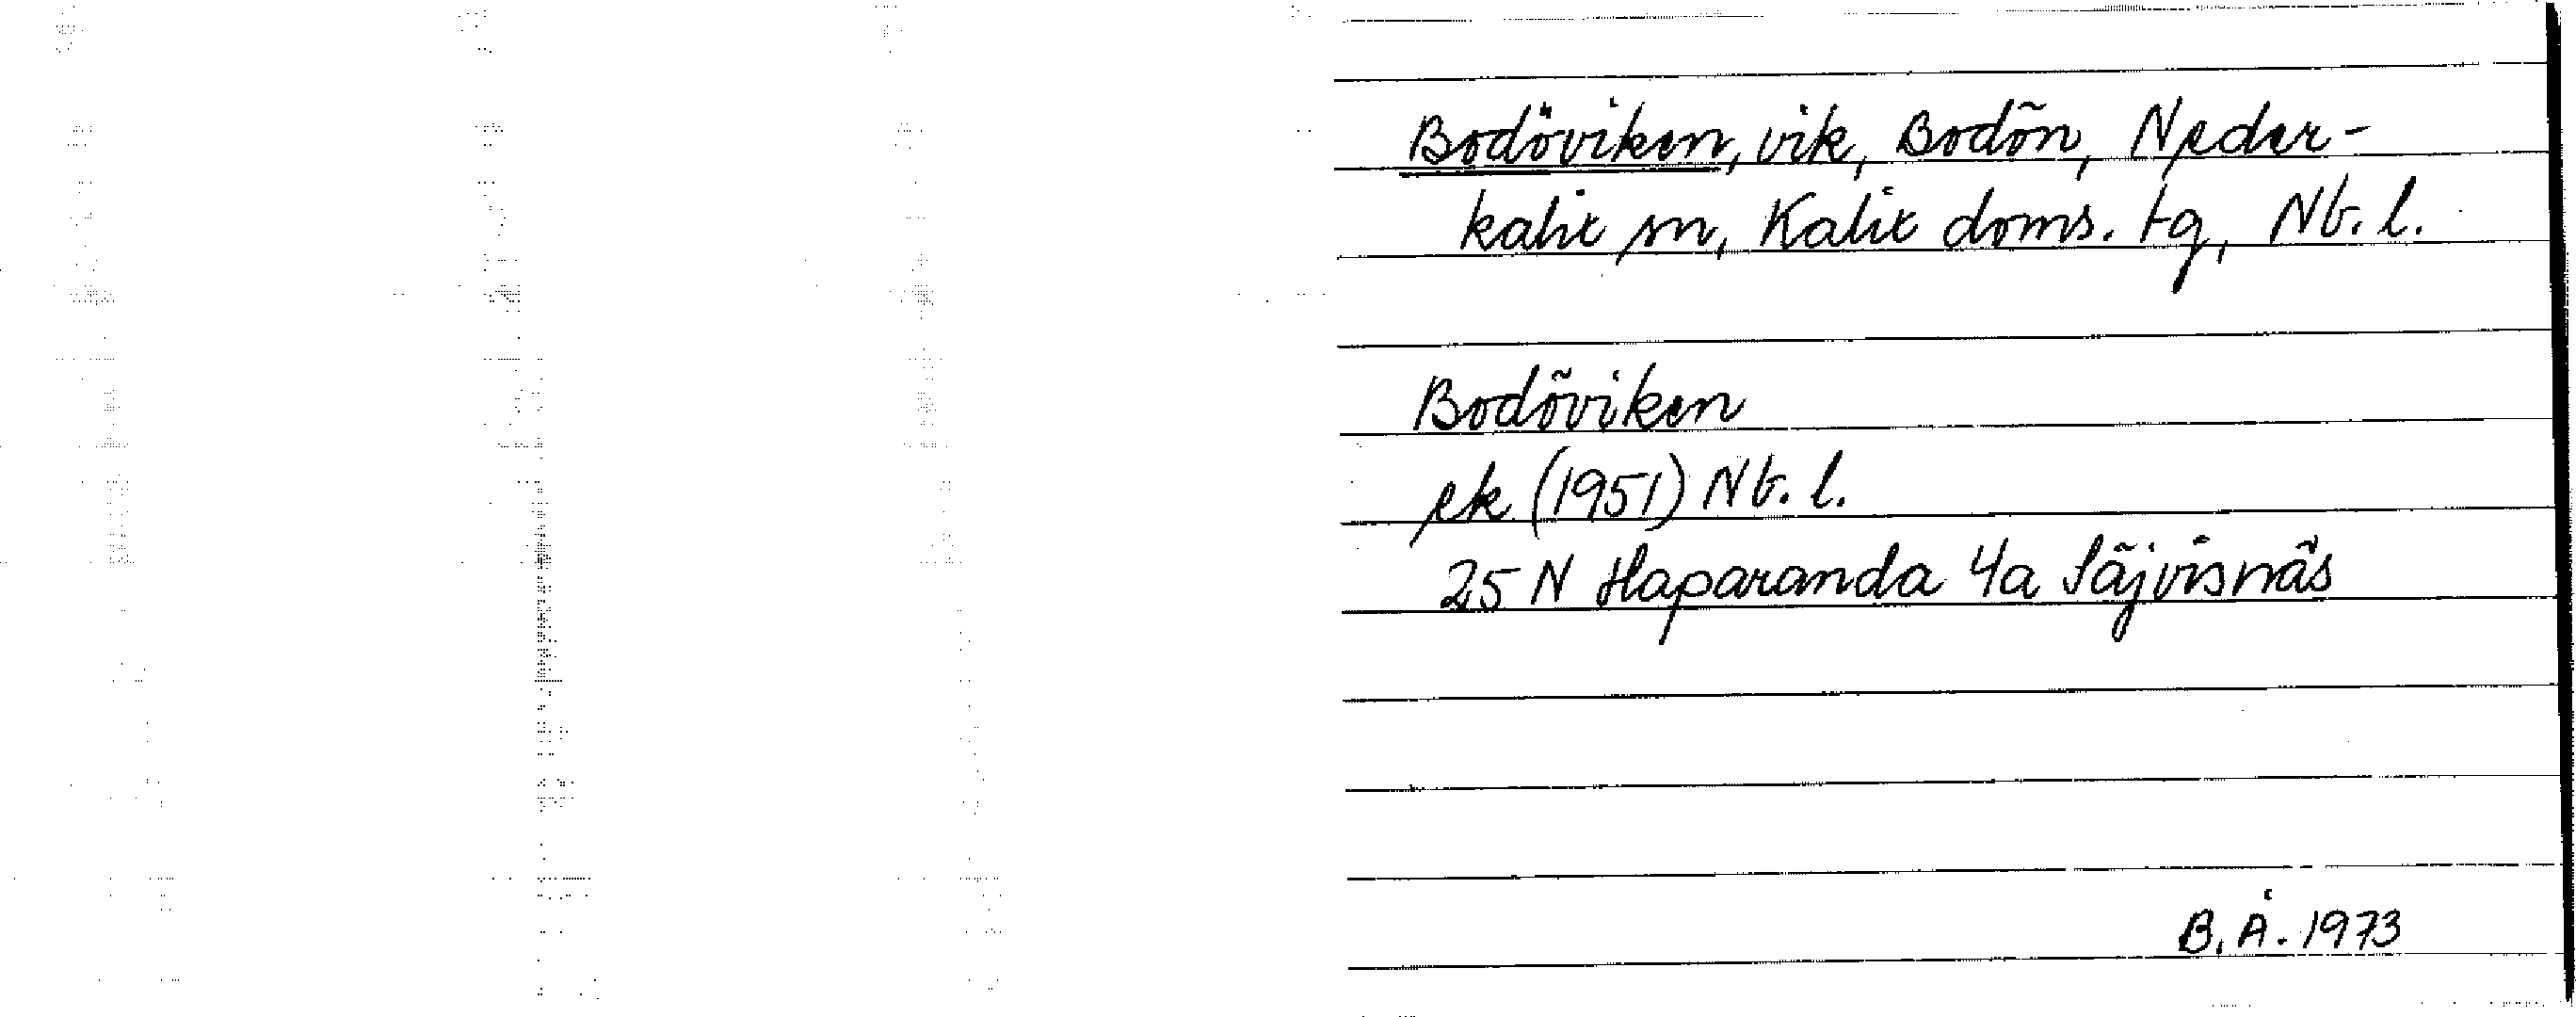 Bodöviken, vik, Bodön, Neder-
kalix sn, Kalix doms. tg, Nb. l.
Bodöviken
ek (1951) Nb. l.
25 N Haparanda 4a Säjvisnäs
B. Å. 1973